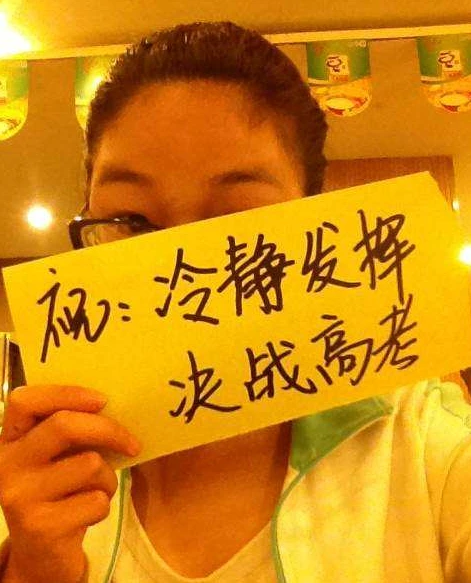 祝：冷静发挥
决战高考